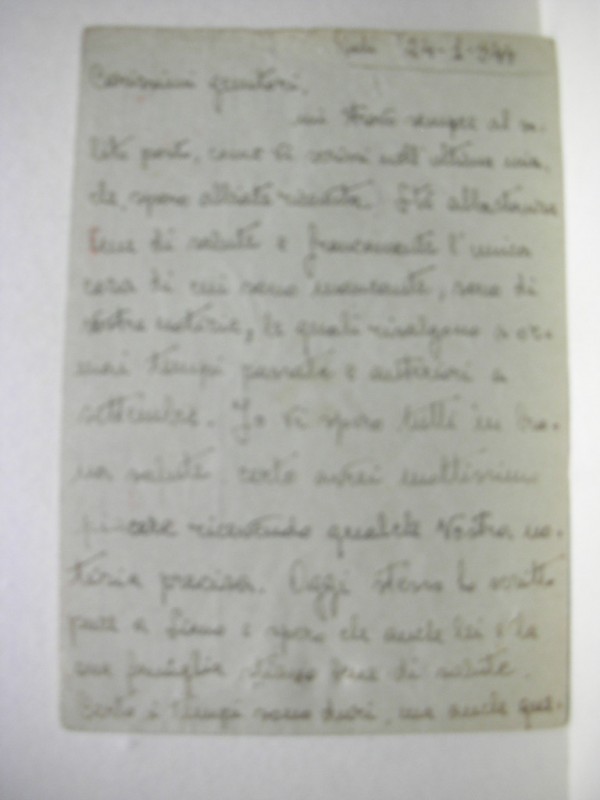 24-1-944
Carissimi genitori,
mi trovo sempre al so-
lito posto, come vi scrissi nell'ultima mia,
che, spero abbiate ricevuta. Stò abbastanza
bene di salute e francamente l'unica
cosa di cui sono mancante, sono di
Vostre notizie, le quali risalgono a or-
mai tempi passati e anteriori a
settembre. Io vi spero tutti in buo-
na salute, certo avrei moltissimo
piacere ricevendo qualche Vostra no-
tizia precisa. Oggi stesso ho scritto
pure a e spero che anche lei e la
sua famiglia, stiano bene di salute.
Certo i tempi sono duri, ma anche que-